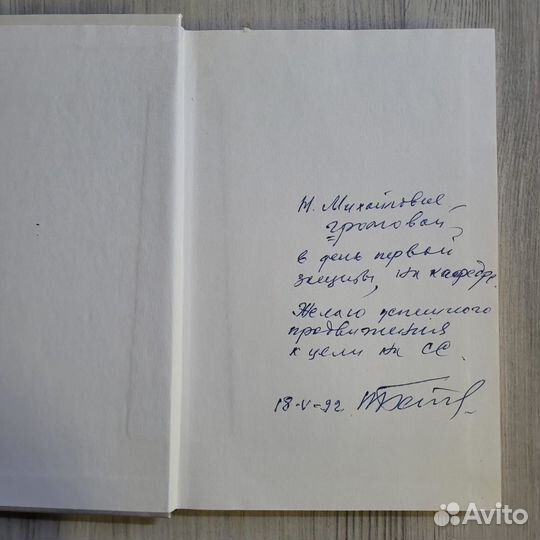 Н. Михайловне
Громовой,
в день первой
защиты, на кафедре.
Желаю успешного
продвижения
к цели на СС.
18-V-92
Avito